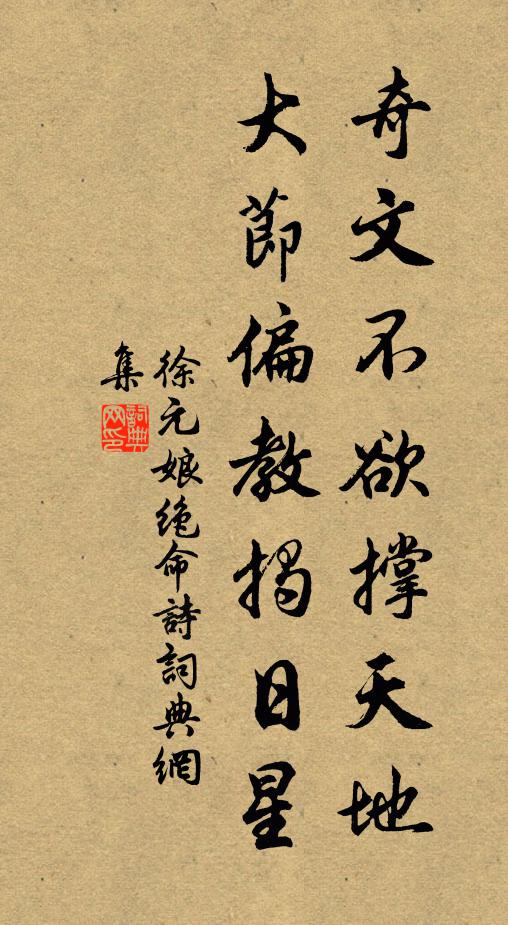 奇文不欲撑天地
大節偏教揭日星
徐元娘绝命詩詞典網
集
詞典网印